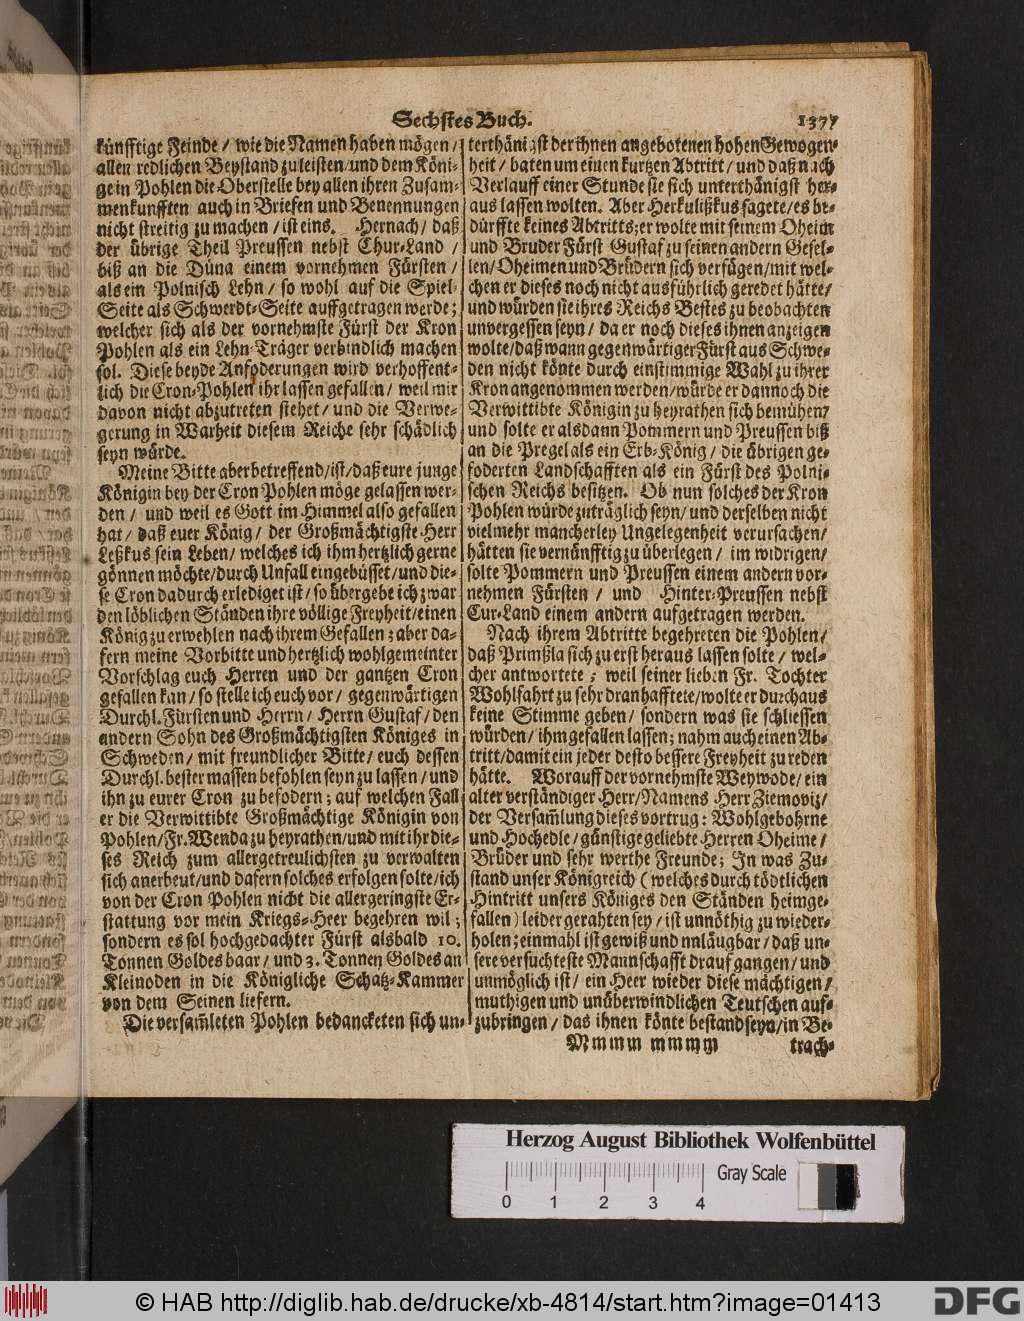 Sechstes Buch.
1377
künfftige Feinde / wie die Namen haben mögen /
allen redlichen Beystand zuleisten/und dem Köni-
ge in Pohlen die Oberstelle bey allen ihren Zusam-
menkunfften auch in Briefen und Benennungen
nicht streitig zu machen / ist eins. Hernach / daß
der übrige Theil Preussen nebst Chur-Land /
biß an die Düna einem vornehmen Fürsten /
als ein Polnisch Lehn / so wohl auf die Spiel-
Seite als Schwerdt-Seite auffgetragen werde;
welcher sich als der vornehmste Fürst der Kron
Pohlen als ein Lehn-Träger verbindlich machen
sol. Diese beyde Anfoderungen wird verhoffent-
lich die Cron-Pohlen ihr lassen gefallen / weil mir
davon nicht abzutreten stehet / und die Verwe-
gerung in Warheit diesem Reiche sehr schädlich
seyn würde.
Meine Bitte aber betreffend/ist/daß eure junge
Königin bey der Cron Pohlen möge gelassen wer-
den / und weil es Gott im Himmel also gefallen
hat / daß euer König / der Großmächtigste Herr
Leßkus sein Leben / welches ich ihm hertzlich gerne
gönnen möchte/durch Unfall eingebüsset/und die-
se Cron dadurch erlediget ist / so übergebe ich zwar
den löblichen Ständen ihre völlige Freyheit/einen
König zu erwehlen nach ihrem Gefallen ; aber da-
fern meine Vorbitte und hertzlich wohlgemeinter
Vorschlag euch Herren und der gantzen Cron
gefallen kan / so stelle ich euch vor / gegenwärtigen
Durchl. Fürsten und Herrn / Herrn Gustaf / den
andern Sohn des Großmächtigsten Königes in
Schweden / mit freundlicher Bitte / euch dessen
Durchl. bester massen befohlen seyn zu lassen / und
ihn zu eurer Cron zu befodern ; auf welchen Fall
er die Verwittibte Großmächtige Königin von
Pohlen/Fr. Wenda zu heyrathen/und mit ihr die-
ses Reich zum allergetreulichsten zu verwalten
sich anerbeut/und dafern solches erfolgen solte/ich
von der Cron Pohlen nicht die allergeringste Er-
stattung vor mein Kriegs-Heer begehren wil ;
sondern es sol hochgedachter Fürst alsbald 10.
Tonnen Goldes baar / und 3. Tonnen Goldes an
Kleinoden in die Königliche Schatz-Kammer
von dem Seinen liefern.
Die versam̃leten Pohlen bedancketen sich un-
terthänigst der ihnen angebotenen hohen Gewogen-
heit / baten um einen kurtzen Abtritt / und daß nach
Verlauff einer Stunde sie sich unterthänigst her-
aus lassen wolten. Aber Herkulißkus sagete/es be-
dürffte keines Abtritts; er wolte mit seinem Oheim
und Bruder Fürst Gustaf zu seinen andern Gesel-
len/Oheimen und Brüdern sich verfügen/mit wel-
chen er dieses noch nicht ausführlich geredet hätte/
und würden sie ihres Reichs Bestes zu beobachten
unvergessen seyn / da er noch dieses ihnen anzeigen
wolte/daß wann gegenwärtiger Fürst aus Schwe-
den nicht könte durch einstimmige Wahl zu ihrer
Kron angenommen werden/würde er dannoch die
Verwittibte Königin zu heyrathen sich bemühen/
und solte er alsdann Pommern und Preussen biß
an die Pregel als ein Erb-König / die übrigen ge-
foderten Landschafften als ein Fürst des Polni-
schen Reichs besitzen. Ob nun solches der Kron
Pohlen würde zuträglich seyn / und derselben nicht
vielmehr mancherley Ungelegenheit verursachen/
hätten sie vernünfftig zu überlegen / im widrigen/
solte Pommern und Preussen einem andern vor-
nehmen Fürsten / und Hinter-Preussen nebst
Cur-Land einem andern aufgetragen werden.
Nach ihrem Abtritte begehreten die Pohlen/
daß Primßla sich zu erst heraus lassen solte / wel-
cher antwortete ; weil seiner lieben Fr. Tochter
Wohlfahrt zu sehr dran hafftete/wolte er durchaus
keine Stimme geben / sondern was sie schliessen
würden / ihm gefallen lassen; nahm auch einen Ab-
tritt/damit ein jeder desto bessere Freyheit zu reden
hätte. Worauff der vornehmste Weywode/ein
alter verständiger Herr/Namens Herr Ziemoviz/
der Versam̃lung dieses vortrug: Wohlgebohrne
und Hochedle / günstige geliebte Herren Oheime /
Brüder und sehr werthe Freunde; In was Zu-
stand unser Königreich (welches durch tödtlichen
Hintritt unsers Königes den Ständen heimge-
fallen) leider gerahten sey / ist unnöthig zu wieder-
holen; einmahl ist gewiß und unläugbar / daß un-
sere versuchteste Mannschafft drauf gangen / und
unmöglich ist / ein Heer wieder diese mächtigen/
muthigen und unüberwindlichen Teutschen auf-
zubringen / das ihnen könte bestand seyn/in Be-
Mmmm mmmm
trach-
Herzog August Bibliothek Wolfenbüttel
Gray Scale
0 1 2 3 4
© HAB http://diglib.hab.de/drucke/xb-4814/start.htm?image=01413
DFG